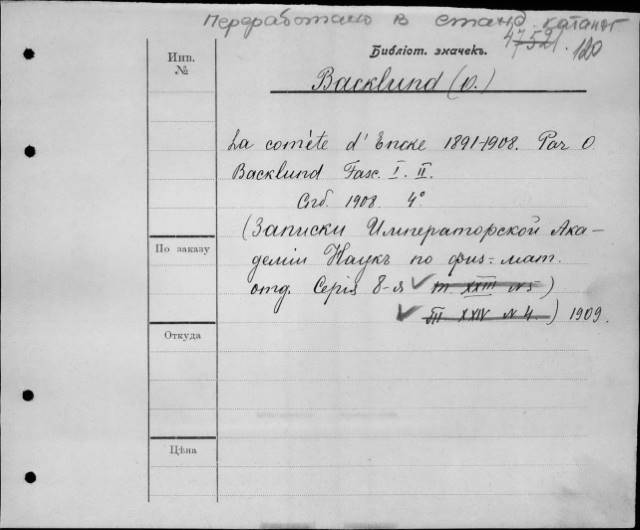 Переработано в станд. каталог
4752
120
Библіот. значекъ.
Инв.
№
Backlund (O.)
La comète d'Encke 1891-1908. Par O
Backlund Fasc. I. II.
Спб. 1908. 4°
(Записки Императорской Ака-
деміи Наукъ по физ.-мат.
отд. Серія 8-я т XXIII №5)
т XXIV №4.) 1909.
По заказу
Откуда
Цѣна